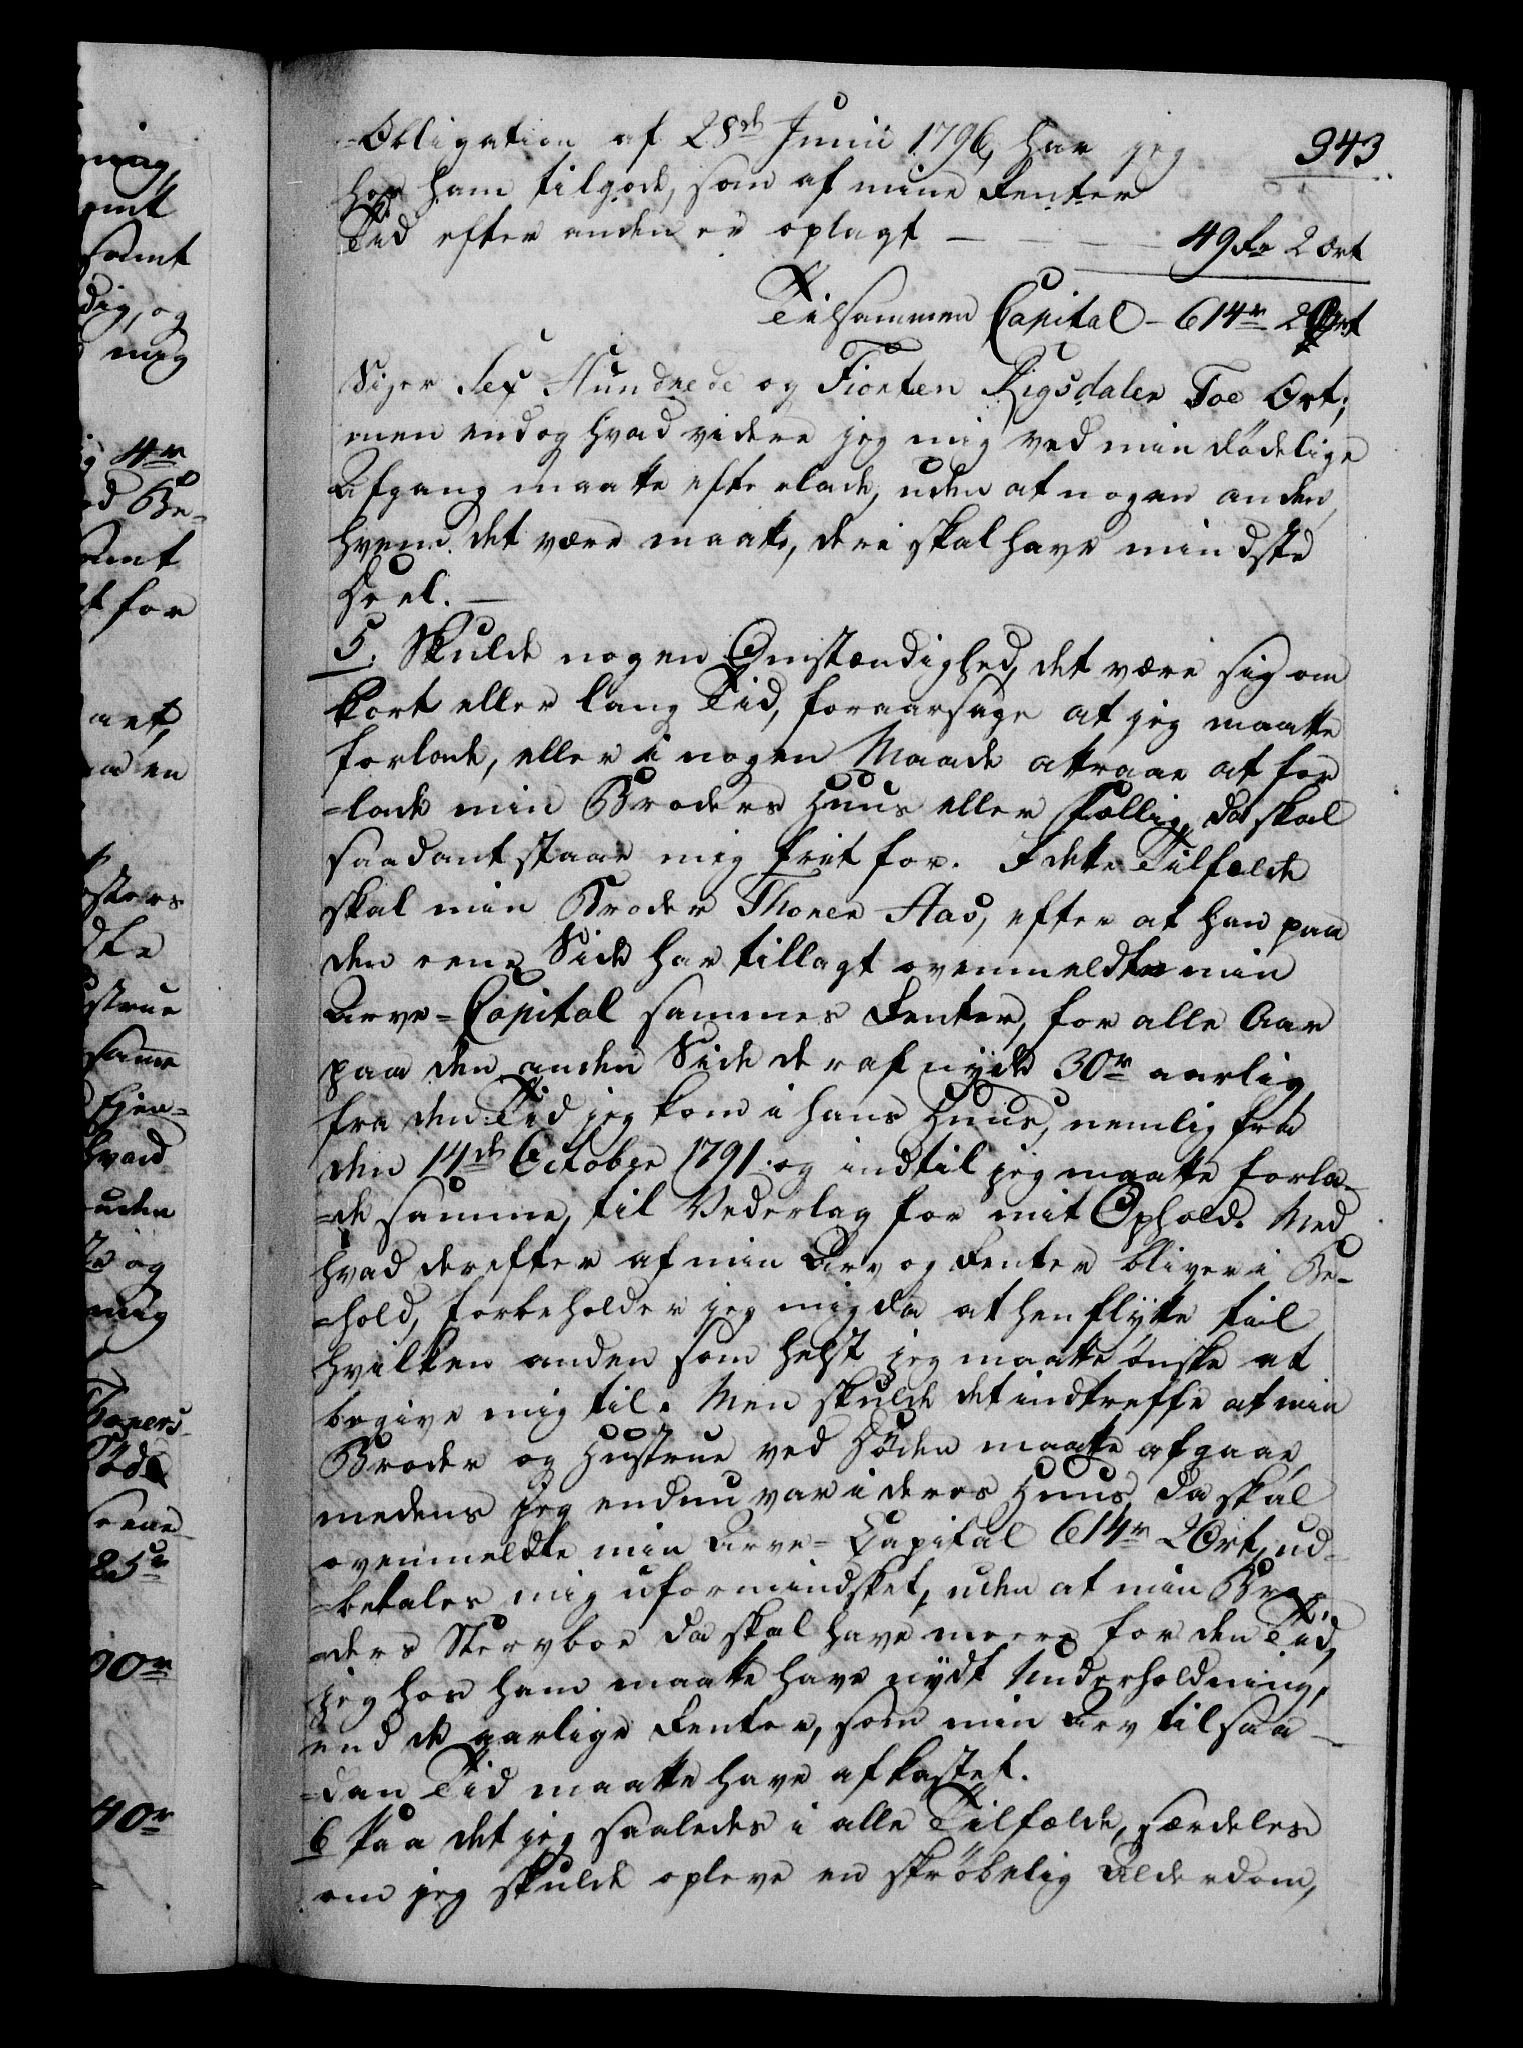 943
=Obligation af 28de Junii 1796, har jeg
hos ham tilgode, som af mine Renter
Tid efter anden er oplagt — — — 49 Rdr 2 Ort
Tilsammen Capital — 614r 2 Ort
Siger Sex Hundrede og Fiorten Rigsdaler Toe Ort;
men endog hvad videre jeg mig ved min dödelige
Afgang maatte efterlade, uden at nogen anden,
hvem det være maatte, deri skal have mindste
Deel. —
5. Skulde nogen Omstændighed, det være sig om
kort eller lang Tid, foraarsage at jeg maatte
forlade, eller i nogen Maade attraae at for
=lade min Broders Huus eller Fællig, da skal
saadant staae mig frit for. I dette Tilfælde
skal min Broder Thorer Aas, efter at han paa
den eene Side har tillagt ovenmeldte min
Arve=Capital sammes Renter, for alle Aar
paa den anden Side deraf nyde 30r aarlig
fra den Tid jeg kom i hans Huus, nemlig fra
den 14de October 1791. og indtil jeg maatte forla=
=de samme, til Vederlag for mit Ophold. Med
hvad derefter af min Arv og Renter bliver i Be=
=hold, forbeholder jeg mig da at henflytte til
hvilken anden som helst jeg maatte önske at
begive mig til. Men skulde det indtreffe at min
Broder og Hustrue ved Döden maatte afgaae,
medens jeg endnu var i deres Huus, da skal
ovenmeldte min Arve=Capital 614r 2 Ort, ud=
=betales mig uformindsket, uden at min Bro=
=ders Stervboe da skal have meere for den Tid,
jeg hos ham maatte have nydt Underholdning,
end de aarlige Renter, som min Arv til saa=
=dan Tid maatte have afkastet.
6 Paa det jeg saaledes i alle Tilfælde, særdeles
om jeg skulde opleve en skröbelig Alderdom,